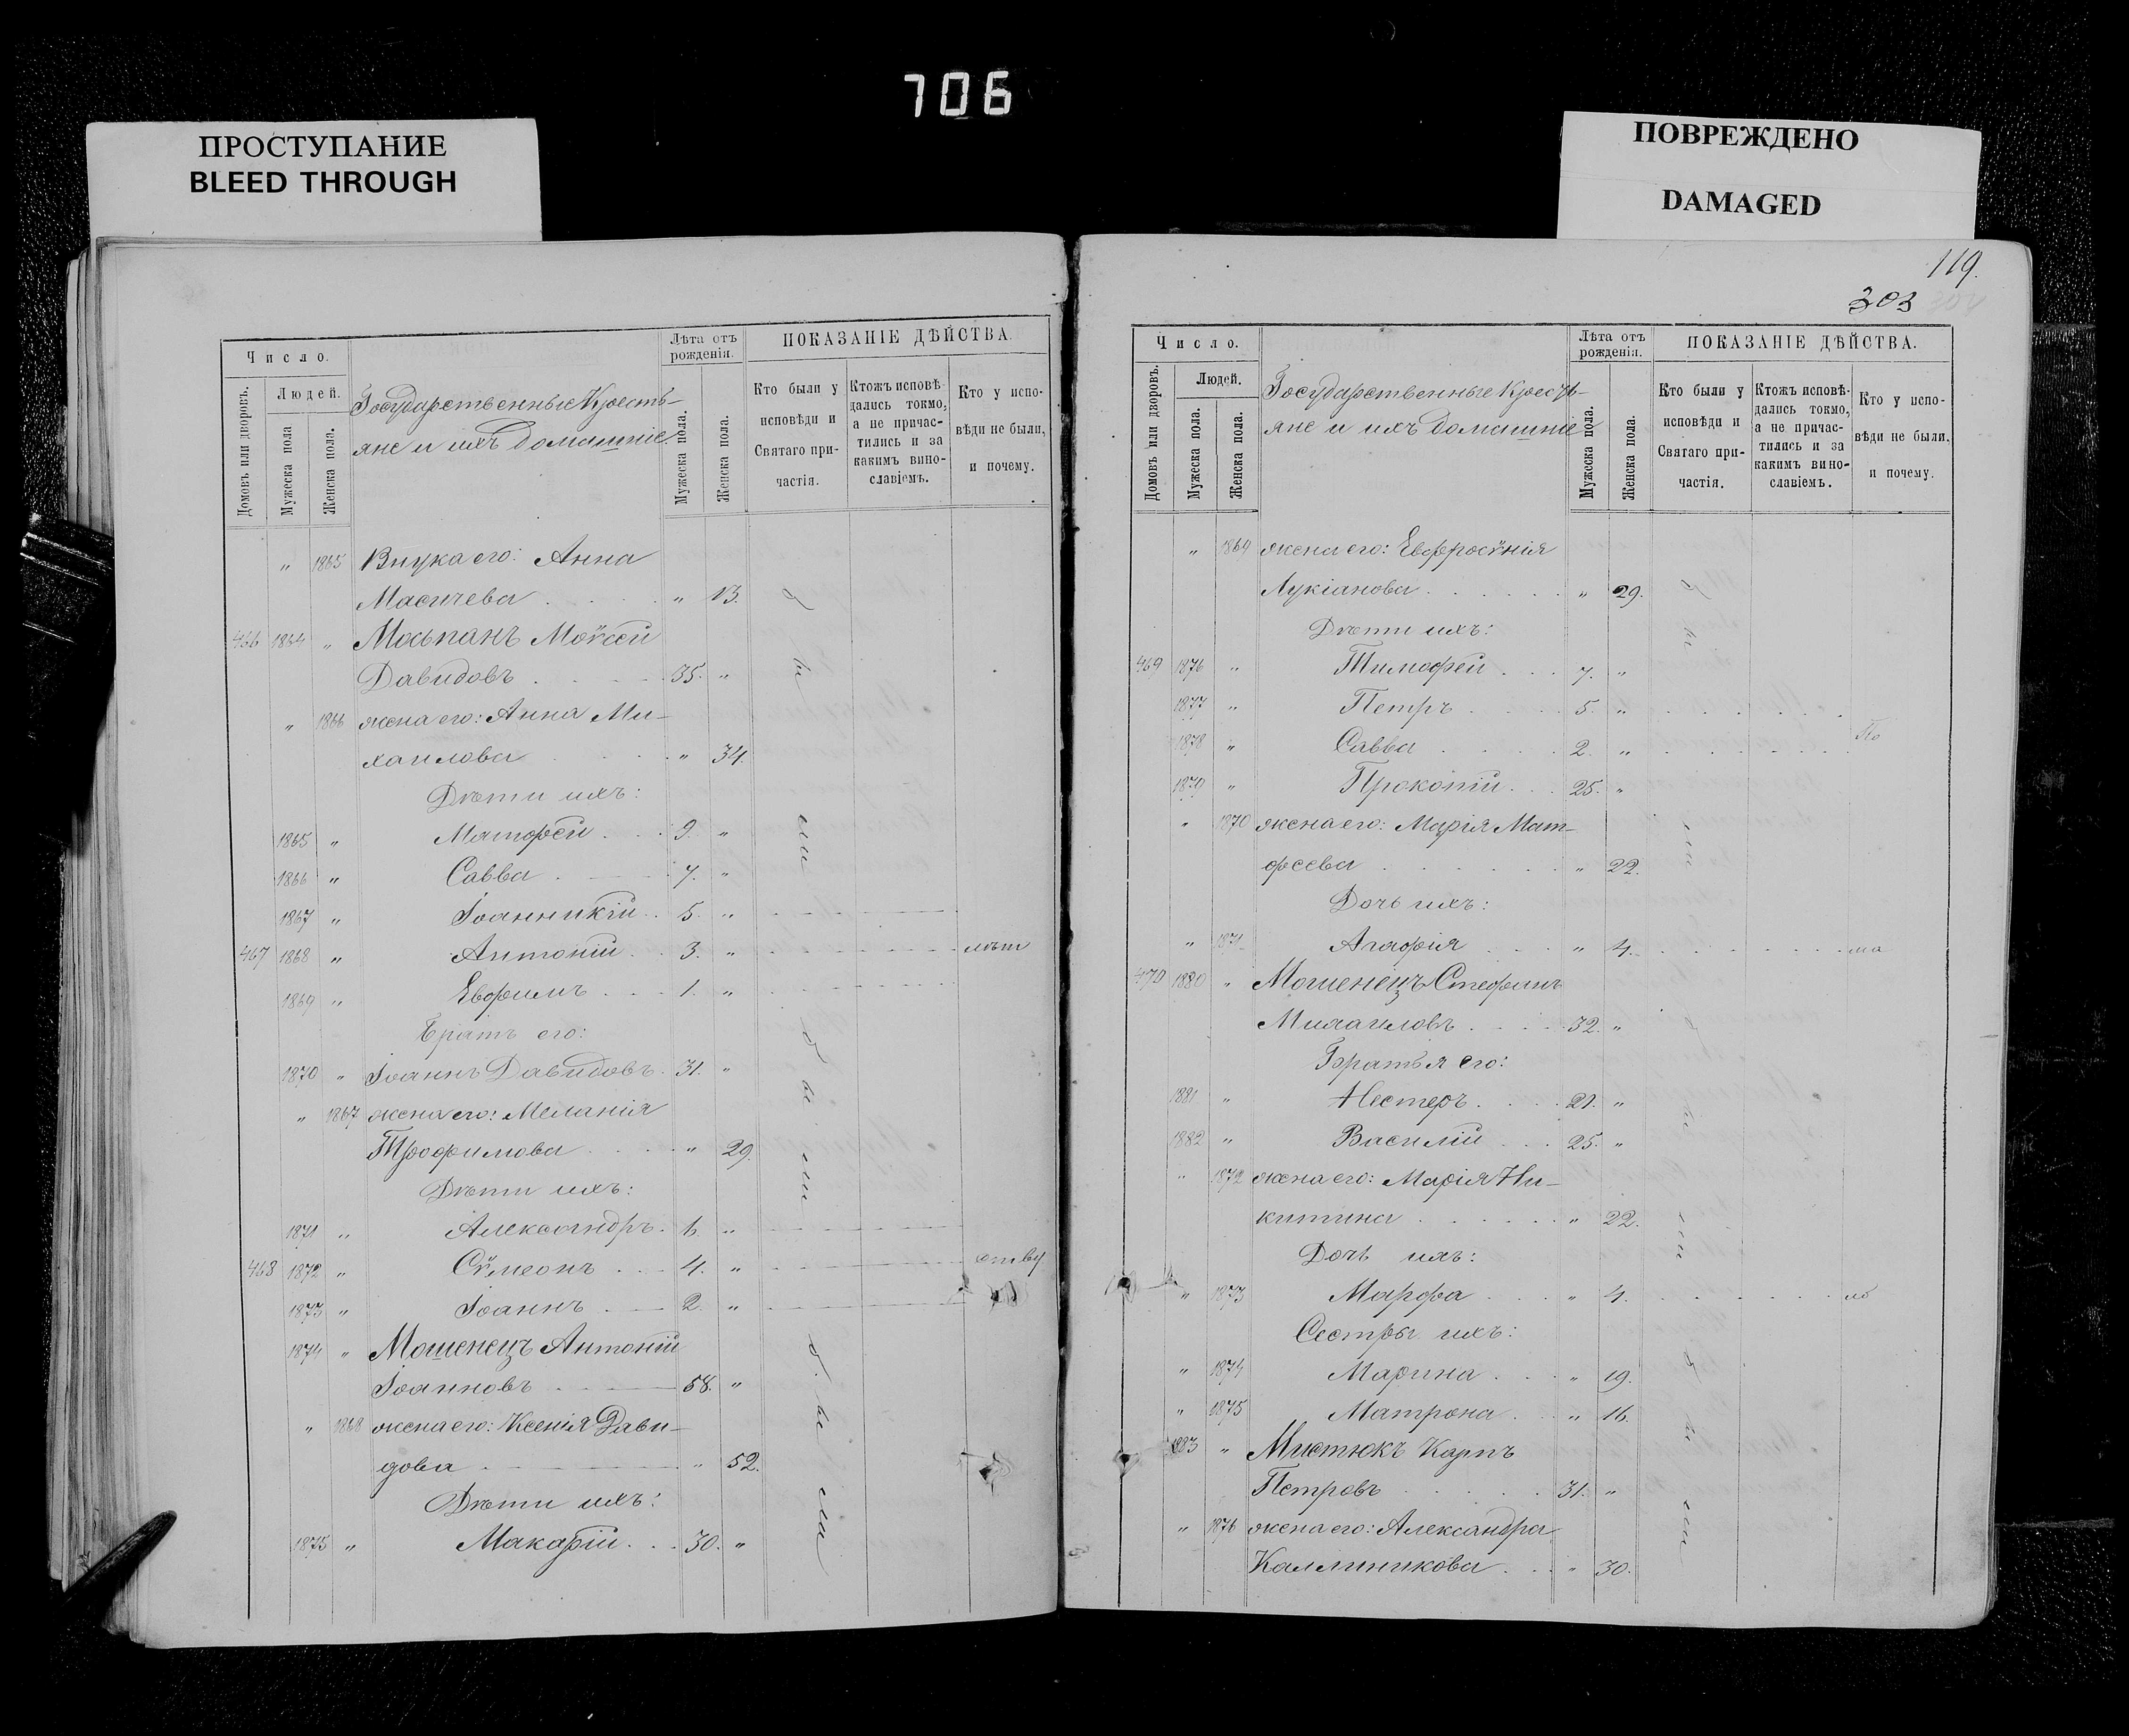 706
ПРОСТУПАНИЕ
BLEED THROUGH
ПОВРЕЖДЕНО
DAMAGED
Число.
Домовъ или дворовъ.
Людей.
Мужеска пола
Женска пола.
Государственные Кресть-
яне и ихъ домашніе
Лѣта отъ
рожденія.
Мужеска пола.
Женска пола.
ПОКАЗАНІЕ ДѢЙСТВА.
Кто были у
исповѣди и
Святаго при-
частія.
Ктожъ исповѣ-
дались токмо,
а не причас-
тились и за
какимъ вино-
славіемъ.
Кто у испо-
вѣди не были,
и почему.
" 1865 Внука его: Анна
Масичева " 13.
466 1864 " Мосьпанъ Моѵсей
Давидовъ 35. "
" 1866 жена его: Анна Ми-
хаилова " 34.
Дѣти ихъ:
1865 " Матфей 9. "
1866 " Савва 7. "
1867 " Іоанникій 5. "
467 1868 " Антоній 3. " лѣт
1869 " Евфимъ 1. "
Братъ его:
1870 " Іоаннъ Давидовъ 31. "
" 1867 жена его: Меланія
Трофимова " 29.
Дѣти ихъ:
1871 " Александръ 6. "
468 1872 " Сѵмеонъ 4. " ству
1873 " Іоаннъ 2. "
1874 " Мошенецъ Антоній
Іоанновъ 58. "
" 1868 жена его: Ксенія Дави-
дова " 52.
Дѣти ихъ:
1875 " Макарій 30. "
были
были
были
119.
303
Число.
Домовъ или дворовъ.
Людей.
Мужеска пола.
Женска пола.
Государственные Кресть-
яне и ихъ домашніе
Лѣта отъ
рожденія.
Мужеска пола.
Женска пола.
ПОКАЗАНІЕ ДѢЙСТВА.
Кто были у
исповѣди и
Святаго при-
частія.
Ктожъ исповѣ-
дались токмо,
а не причас-
тились и за
какимъ вино-
славіемъ.
Кто у испо-
вѣди не были,
и почему.
" 1869 жена его: Евфросѵнія
Лукіанова " 29.
Дѣти ихъ:
469 1876 " Тимофей 7. "
1877 " Петръ 5. "
1878 " Савва 2. " По
1879 " Прокопій 25. "
" 1870 жена его: Марія Мат-
феева " 22.
Дочь ихъ:
" 1871 Агафія " 4. ма
470 1880 " Мошенецъ Стефанъ
Михаиловъ 32. "
Братья его:
1881 " Нестеръ 21. "
1882 " Василій 25. "
" 1872 жена его: Марія Ни-
китина " 22.
Дочь ихъ:
" 1873 Марфа " 4.
Сестры ихъ:
" 1874 Марина " 19.
" 1875 Матрона " 16.
1883 " Мистюкъ Карпъ
Петровъ 31. "
" 1876 жена его: Александра
Каллиникова " 30.
были
были
были